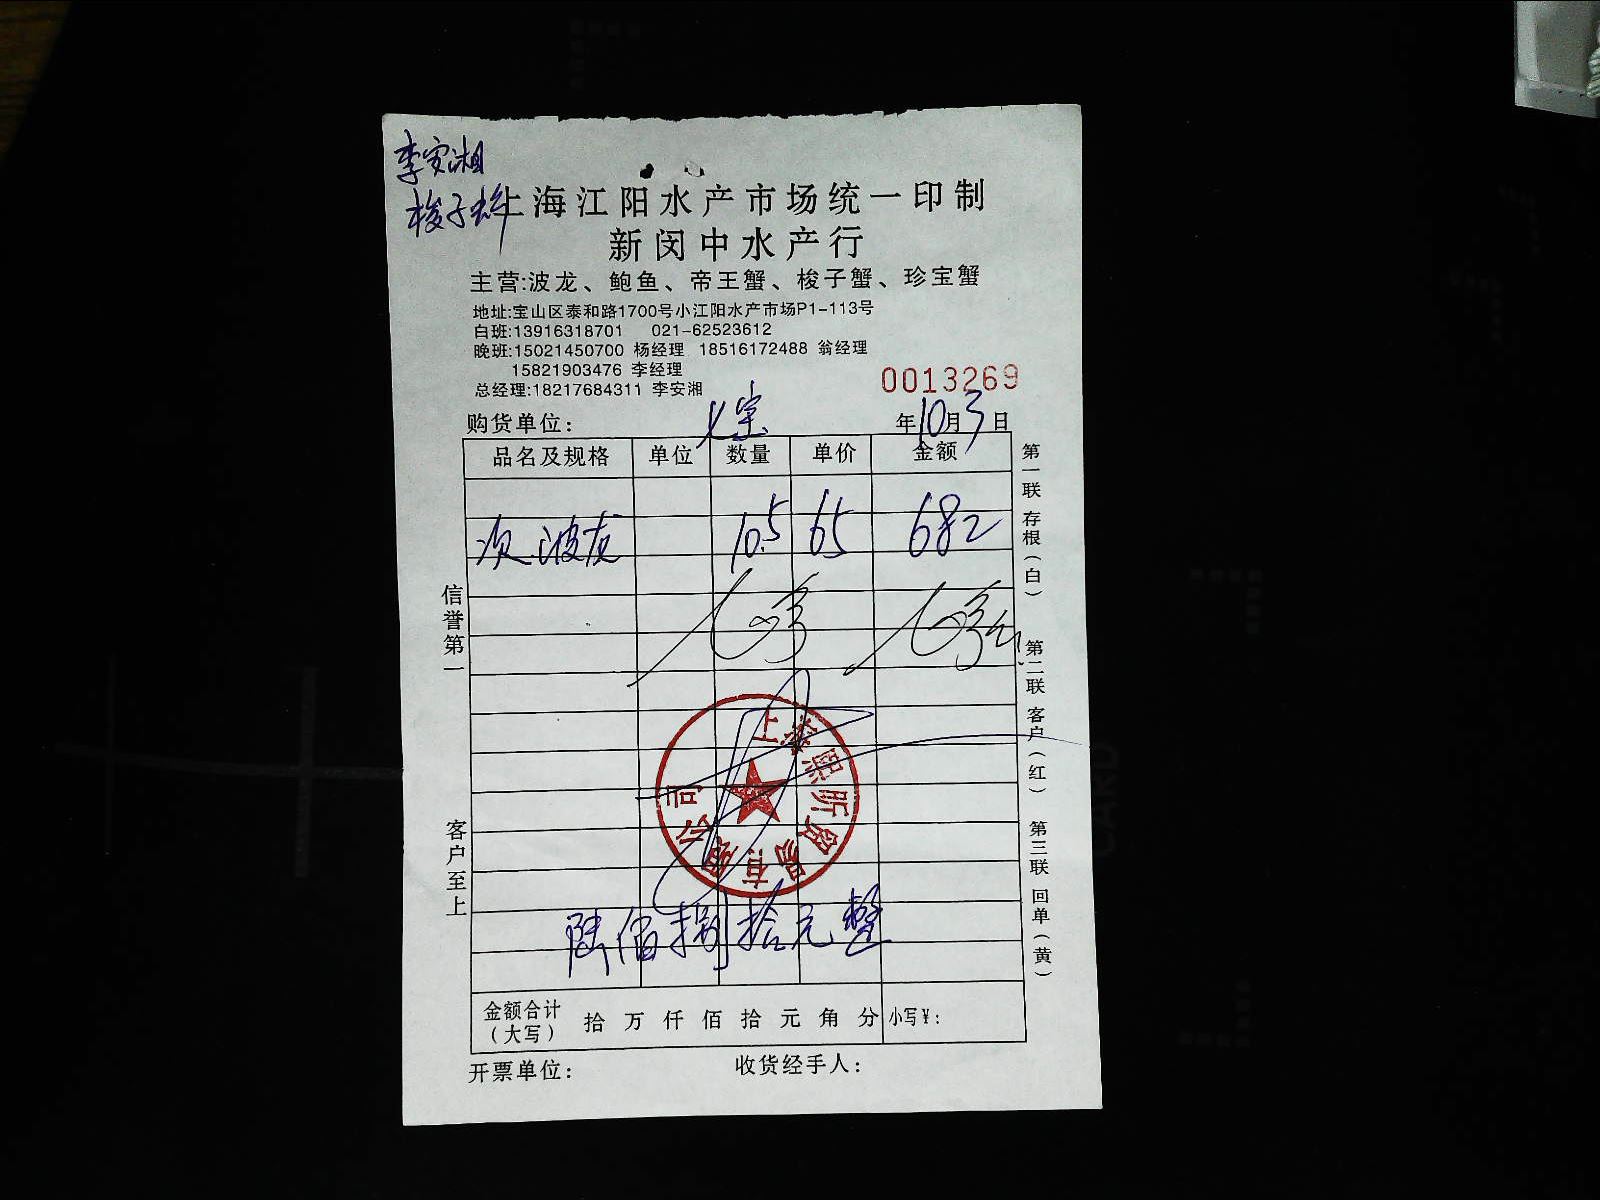 李安湘
梭子蟹
上海江阳水产市场统一印制
新闵中水产行
主营:波龙、鲍鱼、帝王蟹、梭子蟹、珍宝蟹
地址:宝山区泰和路1700号小江阳水产市场P1-113号
白班:13916318701 021-62523612
晚班:15021450700 杨经理 18516172488 翁经理
15821903476 李经理
总经理:18217684311 李安湘
0013269
购货单位: 七宝
年10月3日
品名及规格 单位 数量 单价 金额
次波龙 10.5 65 682
陆佰捌拾元整
金额合计(大写) 拾 万 仟 佰 拾 元 角 分 小写¥:
开票单位: 收货经手人:
信誉第一
客户至上
第一联 存根(白) 第二联 客户(红) 第三联 回单(黄)
贸易有限公司
CARD